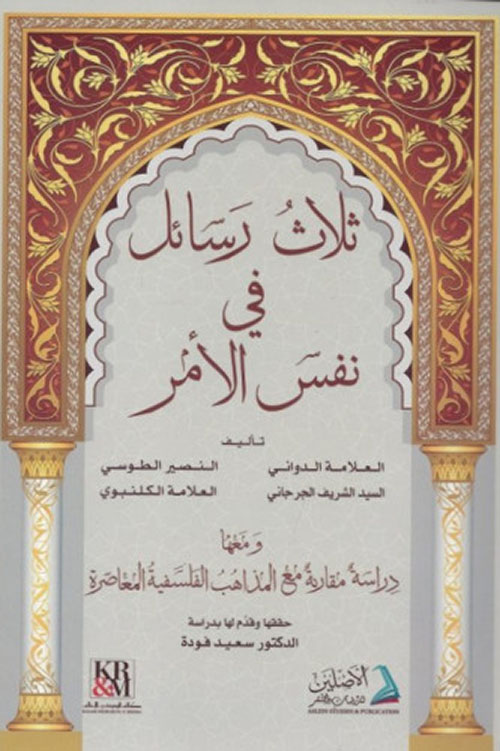 ثلاثُ رسائل
في
نفس الأمر
تأليف
العلامة الدواني    النصير الطوسي
السيد الشريف الجرجاني    العلامة الكلنبوي
ومعها
دراسة مقارنة مع المذاهب الفلسفية المعاصرة
حققها وقدّم لها بدراسة
الدكتور سعيد فودة
KR&M
الأصلين
للدراسات والنشر
ASLEIN STUDIES & PUBLICATION